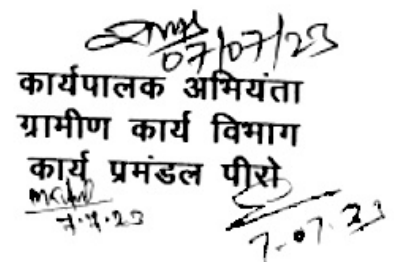 07/07/23
कार्यपालक अभियंता
ग्रामीण कार्य विभाग
कार्य प्रमंडल पीरो
7.7.23
7.07.23